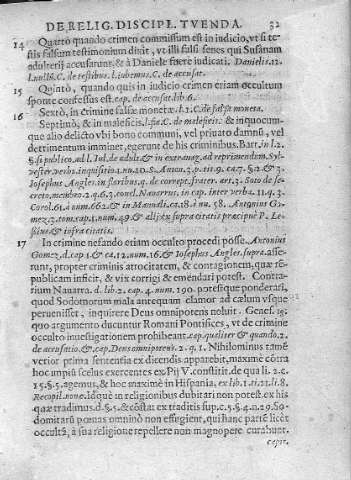 DE RELIG. DISCIPL. TVENDA. 32
14 Quarto quando crimen commissum est in iudicio, vt si te-
stis falsum testimonium dixit, vt illi falsi senes qui Susanam
adulterij accusarunt, & à Daniele fuere iudicati. Danielis. 12.
C. de testibus. l. C. de accusat.
15 Quintò, quando quis in iudicio crimen etiam occultum
sponte confessus est. cap. de accusat. lib. 6.
16 Sextò, in crimine falsæ monetæ. l. 2. C. de falsa moneta.
Septimò, & in maleficis. C. de malefic. & in quocum-
que alio delicto vbi bono communi, vel priuato damnũ, vel
detrimentum imminet, ex gerunt de his criminibus. Bart. in l. 2.
§. si publico, ad l. Iul. de adult. & in extrauag. ad reprimendum. Syl-
uester. verbo. inquisitio 4. nu. 10. 5. Anton. 3. p. tit. 9. ca. 7. §. 2 & 3
Iosephus Angles. in floribus. q. de corrept. frater. art. 3. Soto de se-
creto, membro. 2. q. 6. 3. conel. Nauarrus. in cap. inter verba. 11. q. 3.
Corol. 61. a num. 662. & in Manuali. ca. 18. à nu. 58. Antonius Go-
mez. 3. tom. cap. 4. num. 49. & alij ex supra citatis præcipuè P. Le-
sius. & infra citatis.
17 In crimine nefando etiam occulto procedi posse. Antonius
Gomez, d. cap. 1 & ca. 12. num. 16. & Iosephus Angles. supra. asse-
runt, propter criminis atrocitatem, & contagionem, quæ rẽ-
publicam inficit, & vix corrigi & emendari potest. Contra-
rium Nauarro. d. lib. 2. cap. 4. num. 190. potestque ponderari,
quod Sodomorum mala antequam clamor ad cælum vsque
peruenisset, inquirere Deus omnipotens noluit. Genes. 18.
quo argumento ducuntur Romani Pontifices, vt de crimine
occulto inuestigationem prohibeant. cap. qualiter & quando. 2.
de accusatio. & cap. Deus omnipotens. 2. q. 1. Nihilominus tamẽ
verior prima sententia ex dicendis apparebit, maximè cõtra
hoc impũ scelus exercentes ex Pij V. constit. de qua li. 2. c.
15. §. 5. agemus, & hoc maximè in Hispania, ex lib. 1. ti. 21. li. 8.
Recopil. nouæ. Idquè in religionibus dubitari non potest. ex his
quæ tradimus. d. §. 5. & cõstat ex traditis sup. c. 5. §. 4. n. 29. So-
domitarũ pœnas omninò non effugient, qui hanc partẽ licèt
occultã, à sua religione repellere non magnopere curabunt.
capit.